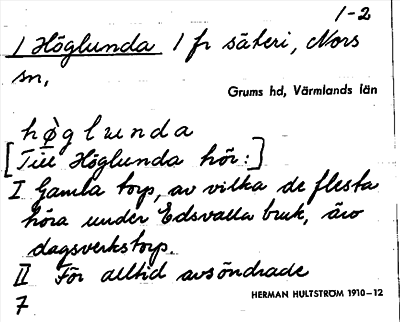 1-2
1 Höglunda 1 fr säteri, Nors
sn,
Grums hd, Värmlands län
høglunda
[Till Höglunda hör:]
I Gamla torp, av vilka de flesta
höra under Edsvalla bruk, äro
dagsverkstorp.
II För alltid avsöndrade
7
HERMAN HULTSTRÖM 1910–12